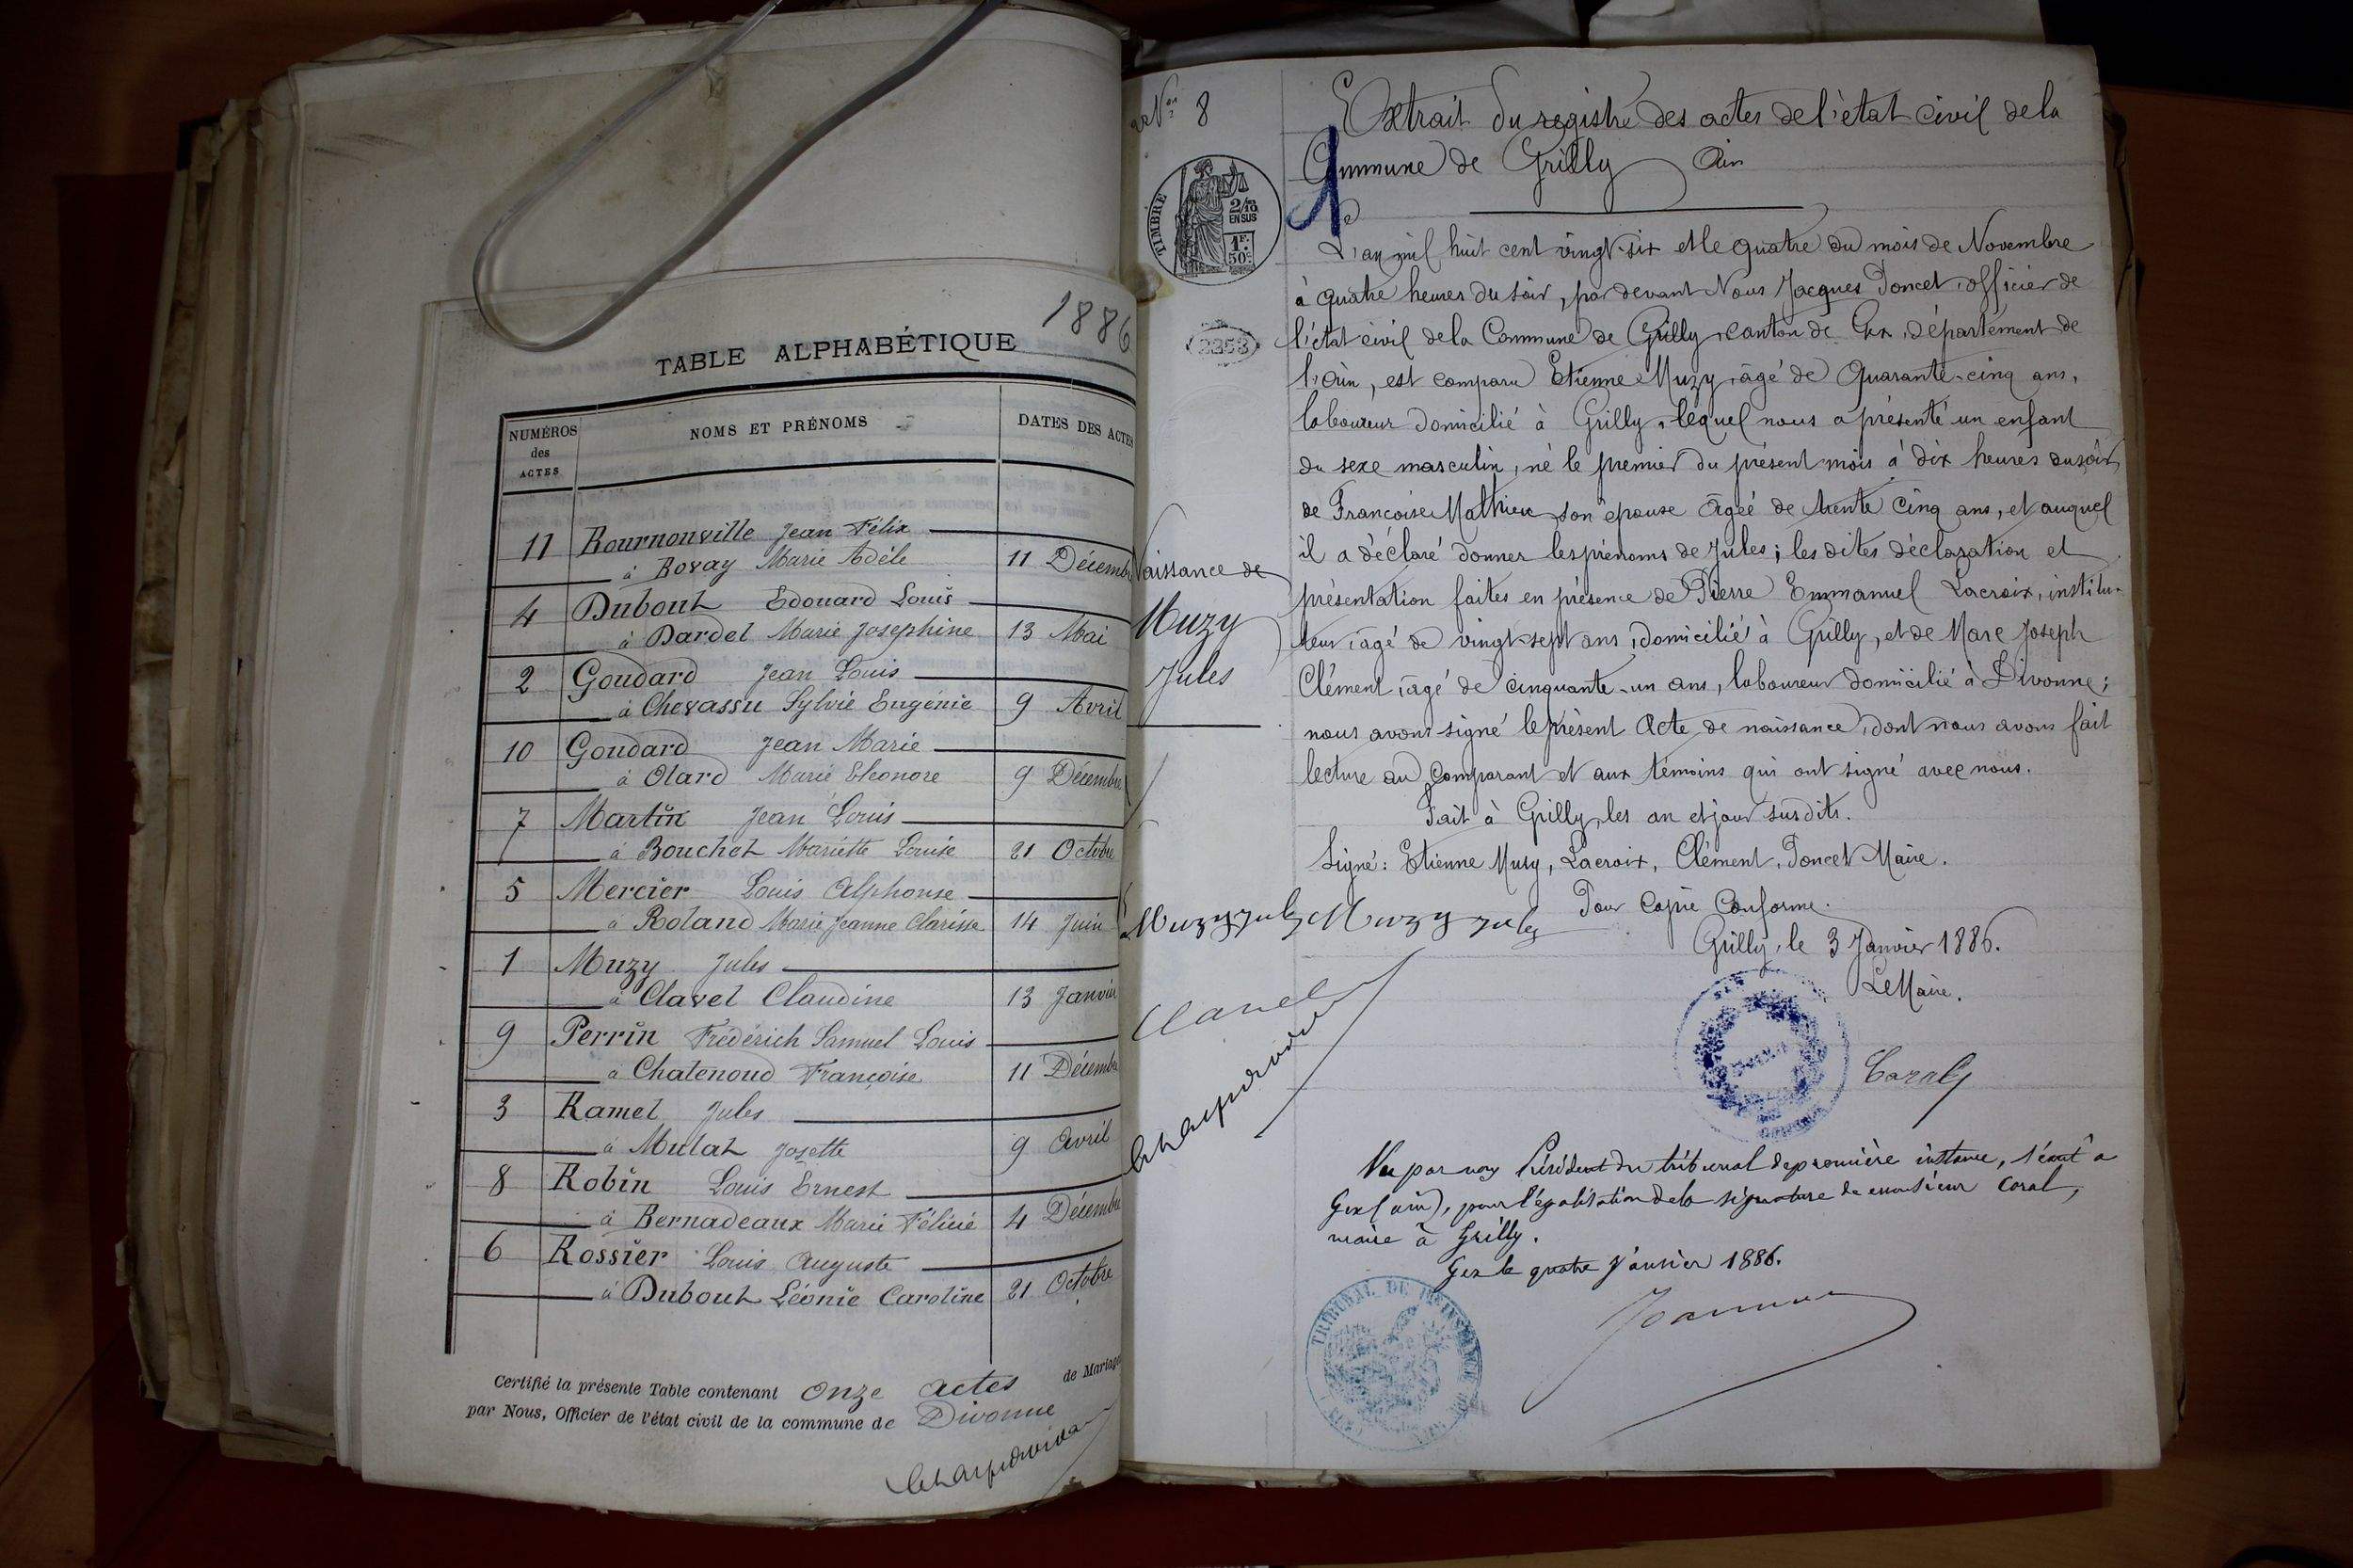 1886
TABLE ALPHABÉTIQUE
NUMÉROS des ACTES
NOMS ET PRÉNOMS
DATES DES ACTES
11 Bournonville Jean Félix
à Bovay Marie Adéle 11 Décemb
4 Dubout Edouard Louis
à Dardel Marie Josephine 13 Mai
2 Goudard Jean Louis
à Chevassu Sylvie Eugénie 9 Avril
10 Goudard Jean Marie
à Olard Marie Eléonore 9 Décembre
7 Martin Jean Louis
à Bouchet Mariette Louise 21 Octobre
5 Mercier Louis Alphonse
à Roland Marie Jeanne Clarisse 14 Juin
1 Muzy Jules
à Clavel Claudine 13 Janvier
9 Perrin Frédérich Samuel Louis
à Chatenoud Françoise 11 Décembre
3 Ramel Jules
à Mulat Josette 9 Avril
8 Robin Louis Ernest
à Bernadeaux Marie Félicie 4 Décembre
6 Rossier Louis Auguste
à Dubout Léonie Caroline 21 Octobre
Certifié la présente Table contenant onze actes de Mariage
par Nous, Officier de l'état civil de la commune de Divonne
N° 8
TIMBRE
2/10 EN SUS
1F. 50c.
2258
Extrait du registre des actes de l'état civil de la
Commune de Grilly Ain
L'an mil huit cent vingt-six et le quatre du mois de Novembre
à quatre heures du soir, par devant Nous Jacques Poncet, officier de
l'état civil de la Commune de Grilly, canton de Gex, département de
l'Ain, est comparu Etienne Muzy, âgé de Quarante-cinq ans,
laboureur domicilié à Grilly, lequel nous a présenté un enfant
du sexe masculin, né le premier du présent mois à dix heures du soir,
de Françoise Mathieu son épouse âgée de trente cinq ans, et auquel
il a déclaré donner les prénoms de Jules; les dites déclaration et
présentation faites en présence de Pierre Emmanuel Lacroix, institu-
teur, âgé de vingt-sept ans, domicilié à Grilly, et de Marc Joseph
Clément, âgé de cinquante-un ans, laboureur domicilié à Divonne;
nous avons signé le présent Acte de naissance, dont nous avons fait
lecture au comparant et aux témoins qui ont signé avec nous.
Fait à Grilly, les an et jour susdits.
Signé: Etienne Muzy, Lacroix, Clément, Poncet Maire.
Pour Copie Conforme.
Grilly, le 3 Janvier 1886.
Le Maire.
Naissance de
Muzy
Jules
Muzy Jules Muzy Jules
Clavel
Vu par nous Président du tribunal de première instance, séant à
Gex (ain), pour légalisation de la signature de monsieur Coral,
maire à Grilly.
Gex le quatre Janvier 1886.
TRIBUNAL DE 1ÈRE INSTANCE